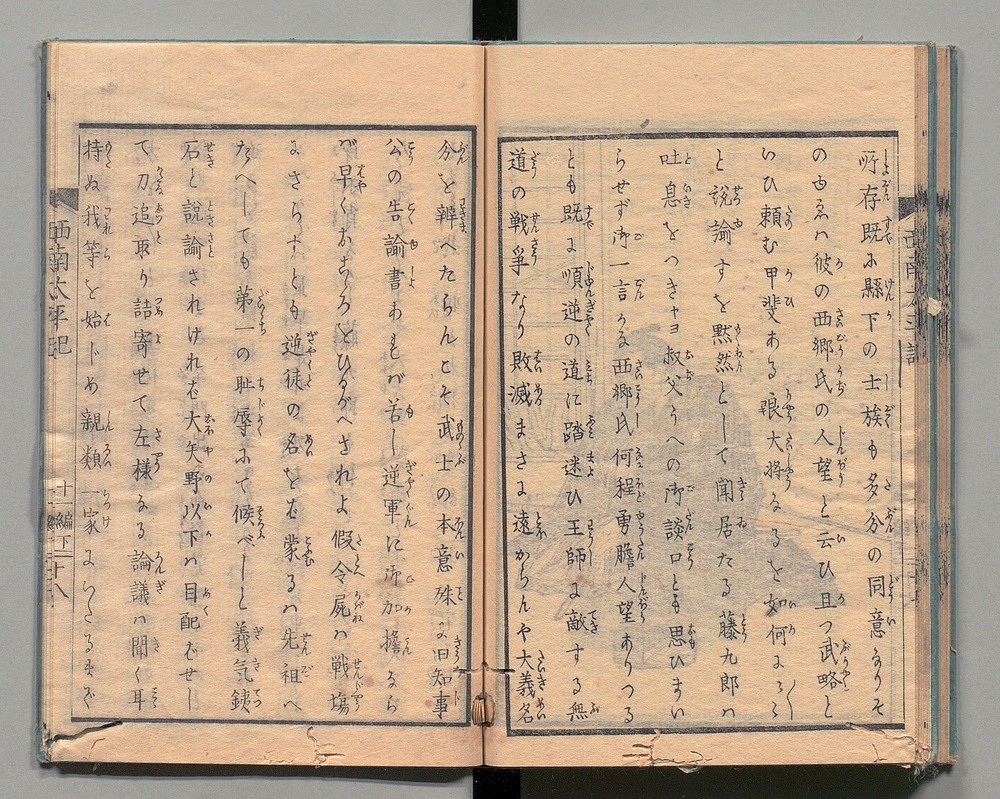 所存既に縣下の士族も多分の同意なりそ
のゆゑハ彼の西郷氏の人望と云ひ且つ武略と
いひ頼む甲斐ある良大将なるを如何に
と説諭すを黙然として聞居たる藤九郎ハ
吐息をつき叔父うへの御談口とも思ひまい
らせず御一言かな西郷氏何程勇膽人望ありつる
とも既に順逆の道に踏迷ひ王師に敵する無
道の戦争なり敗滅まさに遠からんや大義名
分を辨へたらんこそ武士の本意殊に旧知事
公の告諭書あれバ苦し逆軍に御加擔なら
バ早くおこゝろをひるがへされよ假令屍ハ戦場
にさらすとも逆徒の名をむ蒙るハ先祖へ
たへしても第一の耻辱にて候べしと義気鉄
石と説諭されけれむ大矢野以下ハ目配せし
て刀追取り詰寄せて左様なる論議ハ聞く耳
持ぬ我等を始じめ親類一家にいたるまで
西南太平記
十一編下
二十八